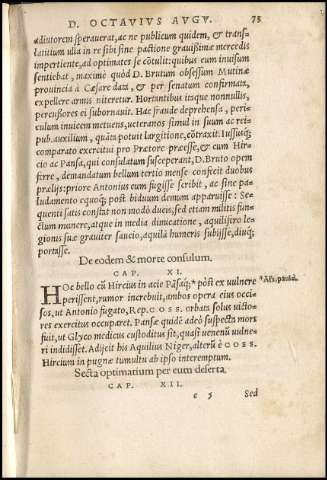 D. OCTAVIVS AVGV. 75
adiutorem sperauerat, ac ne publicum quidem, & trans-
latitium ulla in re sibi sine pactione grauissimæ mercedis
impertiente, ad optimates se cōtulit: quibus eum inuisum
sentiebat, maximè quòd D. Brutum obsessum Mutinæ
prouincia à Cæsare data, & per senatum confirmata,
expellere armis niteretur. Hortantibus itaque nonnullis,
percussores ei subornauit. Hac fraude deprehensa, peri-
culum inuicem metuens, ueteranos simul in suum ac rei-
pub. auxilium, quāta potuit largitione, cōtraxit. Iussusq́;
comparato exercitui pro Prætore præesse, & cum Hir-
cio ac Pansa, qui consulatum susceperant, D. Bruto opem
ferre, demandatum bellum tertio mense confecit duobus
prælijs: priore Antonius eum fugisse scribit, ac sine pa-
ludamento equoq́; post biduum demum apparuisse: Se-
quenti satis constat non modò ducis, sed etiam militis fun-
ctum munere, atque in media dimicatione, aquilifero le-
gionis suæ grauiter saucio, aquilā humeris subijsse, diuq́;
portasse.
De eodem & morte consulum.
CAP. XI.
HOc bello cū Hircius in acie Pāsaq́; * pòst ex uulnere
perissent, rumor increbuit, ambos opera eius occi-
sos, ut Antonio fugato, Rep. COSS. orbata solus victo-
res exercitus occuparet. Pansæ quidē adeò suspecta mors
fuit, ut Glyco medicus custoditus sit, quasi uenenū uulne-
ri indidisset. Adijcit his Aquilius Niger, alterū è COSS.
Hircium in pugnæ tumultu ab ipso interemptum.
Secta optimatium per eum deserta.
CAP. XII.
c 5 Sed